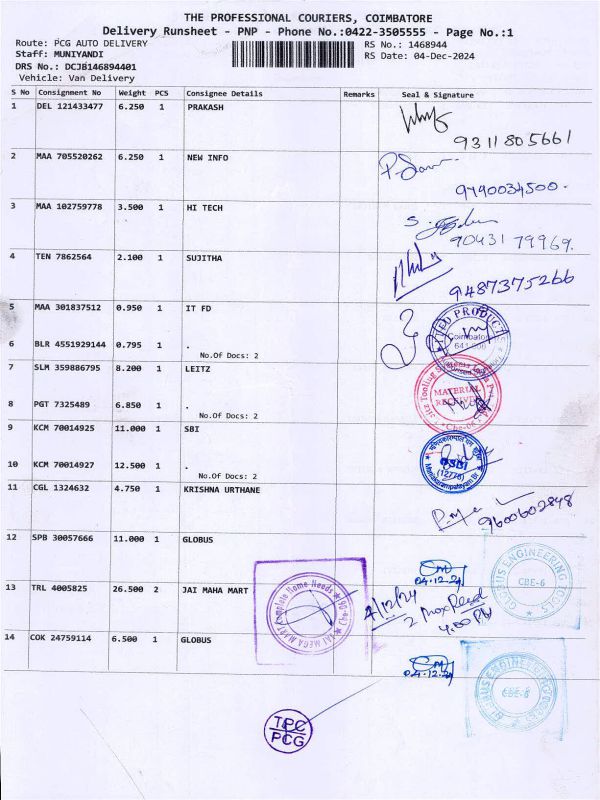 THE PROFESSIONAL COURIERS, COIMBATORE
Delivery Runsheet - PNP - Phone No.:0422-3505555 - Page No.:1
Route: PCG AUTO DELIVERY
Staff: MUNIYANDI
DRS No.: DCJB146894401
Vehicle: Van Delivery
RS No.: 1468944
RS Date: 04-Dec-2024
S No Consignment No Weight PCS Consignee Details Remarks Seal & Signature
1 DEL 121433477 6.250 1 PRAKASH
9311805661
2 MAA 705520262 6.250 1 NEW INFO
9790034500.
3 MAA 102759778 3.500 1 HI TECH
9043179969.
4 TEN 7862564 2.100 1 SUJITHA
9487375266
5 MAA 301837512 0.950 1 IT FD
6 BLR 4551929144 0.795 1 .
No.Of Docs: 2
7 SLM 359886795 8.200 1 LEITZ
MATERIAL
8 PGT 7325489 6.850 1 .
No.Of Docs: 2
9 KCM 70014925 11.000 1 SBI
10 KCM 70014927 12.500 1 .
No.Of Docs: 2
11 CGL 1324632 4.750 1 KRISHNA URTHANE
9600602848
12 SPB 30057666 11.000 1 GLOBUS
04.12.24
GLOBUS ENGINEERING TOOLS
CBE-6
13 TRL 4005825 26.500 2 JAI MAHA MART
4/12/24
2 Box Recd
4.00 PM
14 COK 24759114 6.500 1 GLOBUS
04.12.24
CBE-6
TPC
PCG